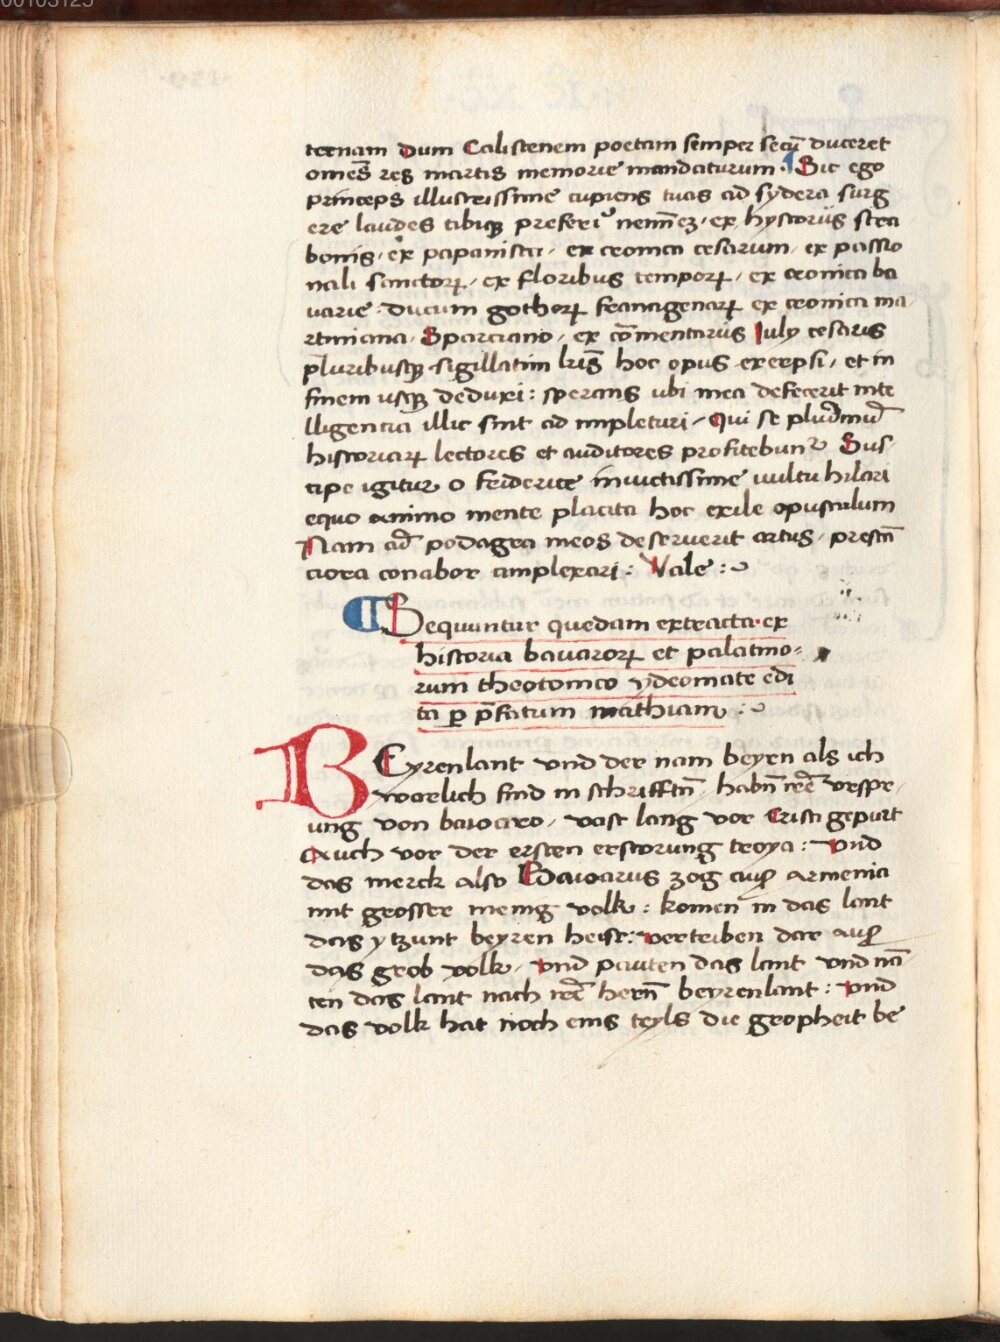 00103125
ternam dum Calistenem poetam semper secū duceret
omēs res martis memorie mandaturum · Sic ego
princeps illustrissime cupiens tuas ad sydera surg
ere laudes tibiqꝫ preferri neminē ex hystoriis stra
bonis · ex papanista · ex cronica cesarum · ex passio
nali sanctorꝝ · ex floribus temporꝝ · ex cronica ba
uarie · ducum gothorꝝ francigenarꝝ ex cronica ma
rtiniana · Sparciano · ex cōmentariis July cesaris
pluribusqꝫ sigillatim lrīs hoc opus excerpsi · et in
finem usqꝫ deduxi : sperans ubi mea defecerit inte
lligencia illic sint ad impleturi · Qui se
historiarꝝ lectores et auditores profitebuntur Sus
cipe igitur o friderice inuictissime uultu hilari
equo animo mente placita hoc exile opusculum
Nam podagra meos deseruerit artus · prestā
ciora conabor amplexari : Vale :
Sequuntur quedam extracta ex
historia bavarorꝝ et palatino-
rum theotonico ydeomate edi
ta ꝑ p̄fatum mathiam :
BEyrenlant vnd der nam beyren als ich
warlich find in schrifftn̄ · habn̄ irē vrspr
ung von bauoaro · vast lang vor Cristi gepurt
Auch vor der ersten erstorung troya : vnd
das merck also Bawarus zog auß armenia
mit grosser menig volk : komen in das lant
das ytzunt beyren heist : vertriben dar auß
das grob volk · vnd pauten das lant vnd nā
ten das lant nach irē hern̄ beyrenlant : vnd
das volk hat noch eins teyls die gropheit be